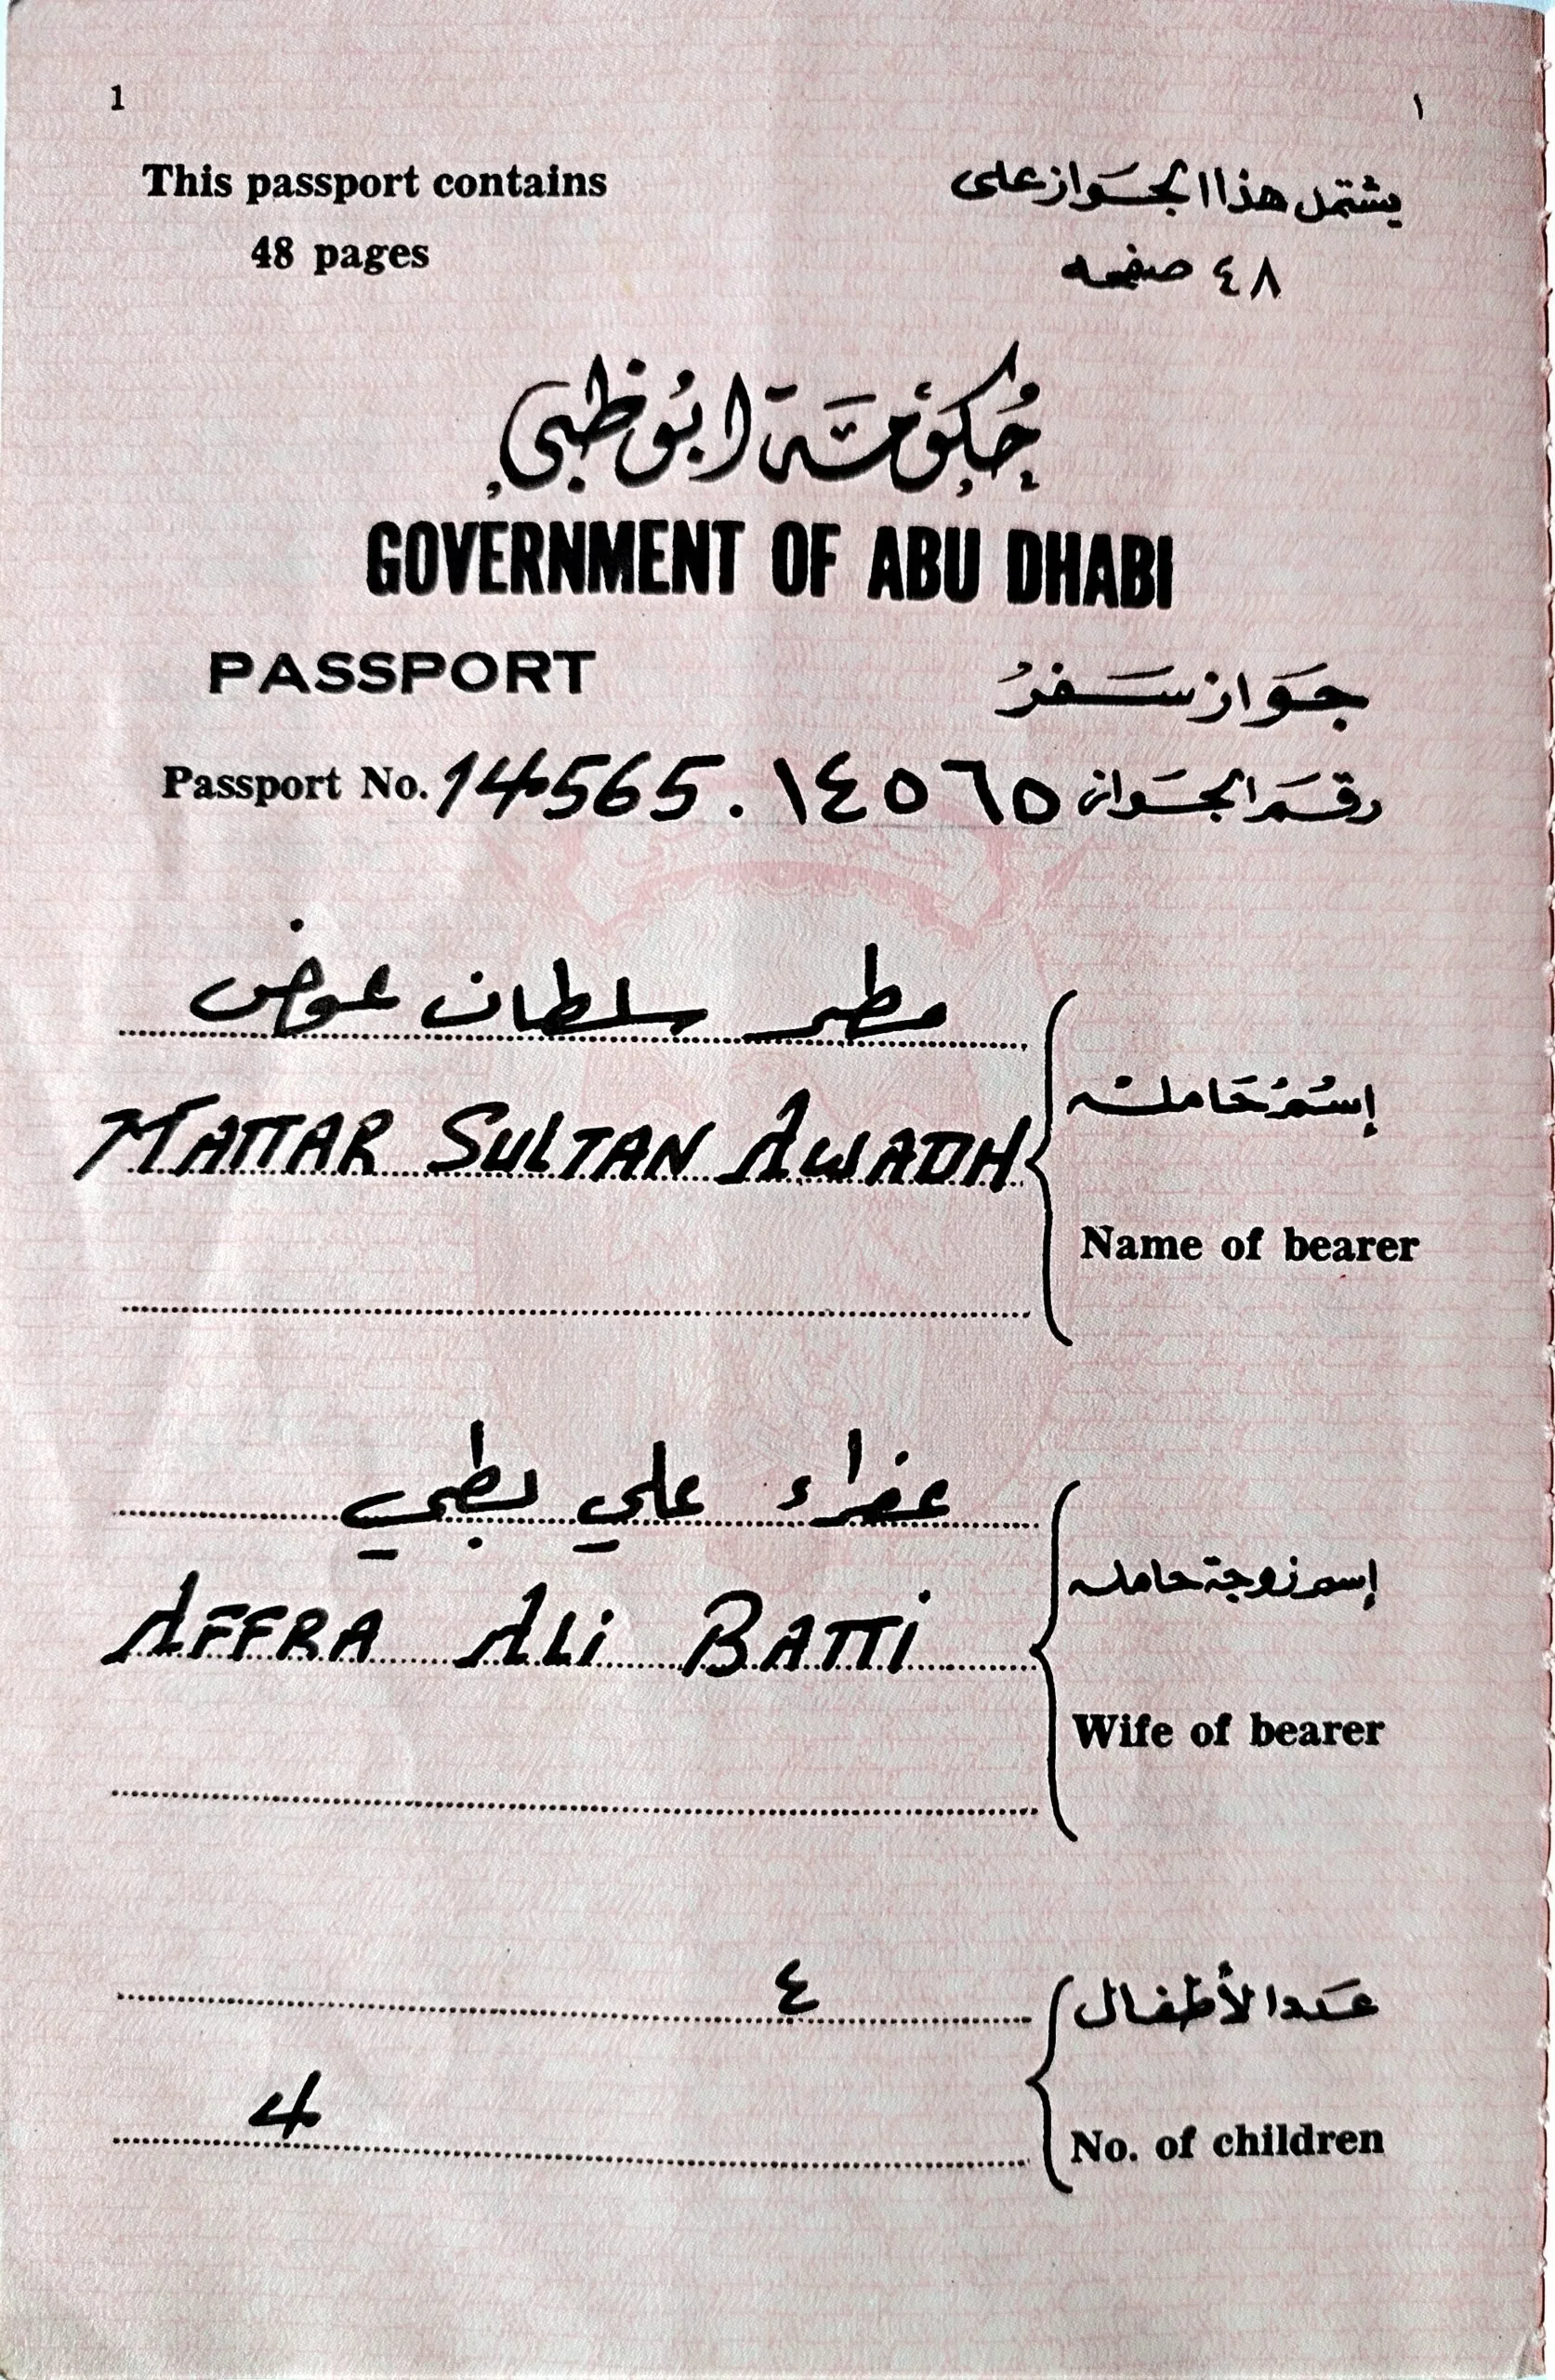 1 ١
This passport contains يشتمل هذا الجَواز على
48 pages ٤٨ صفحه
حُكِوُمَة ابُوظبي
GOVERNMENT OF ABU DHABI
PASSPORT جَواز سَفرُ
Passport No. 14565 . ١٤٥٦٥ رقم الجَواز
مطر سلطان عوض
MATTAR SULTAN AWADH
إسْمُ حَامله
Name of bearer
عفراء علي بطي
AFFRA ALi BATTi
إسم زوجة حامله
Wife of bearer
٤ عَدد الأطفال
4 No. of children